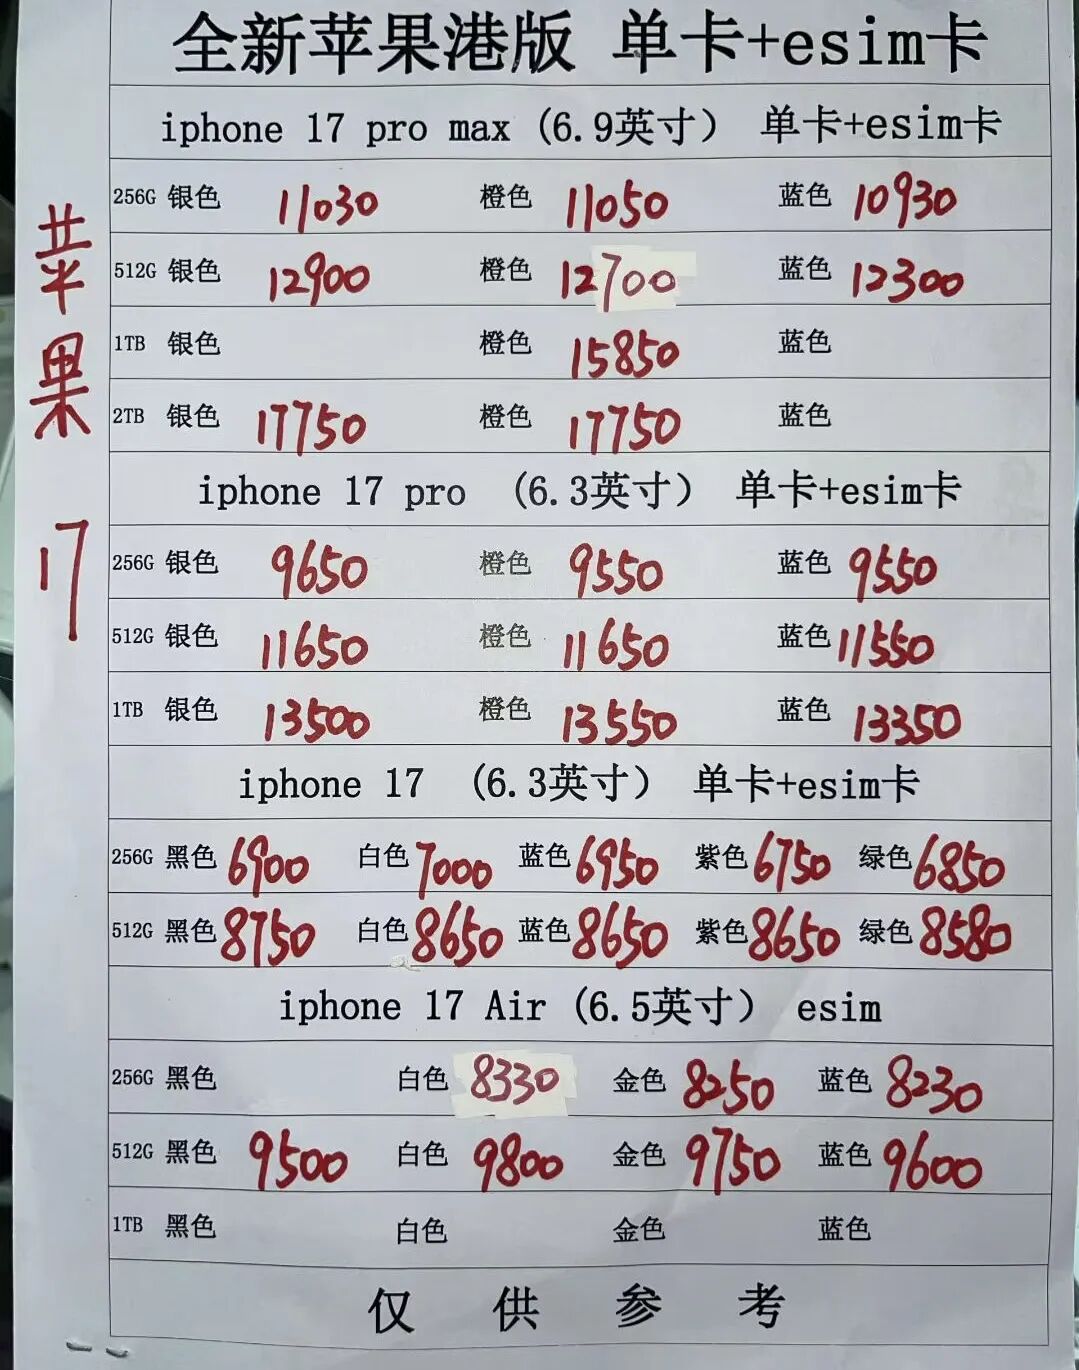 全新苹果港版 单卡+esim卡
iphone 17 pro max (6.9英寸) 单卡+esim卡
256G 银色 11030 橙色 11050 蓝色 10930
512G 银色 12900 橙色 12700 蓝色 12300
1TB 银色 橙色 15850 蓝色
2TB 银色 17750 橙色 17750 蓝色
iphone 17 pro (6.3英寸) 单卡+esim卡
256G 银色 9650 橙色 9550 蓝色 9550
512G 银色 11650 橙色 11650 蓝色 11550
1TB 银色 13500 橙色 13550 蓝色 13350
iphone 17 (6.3英寸) 单卡+esim卡
256G 黑色 6900 白色 7000 蓝色 6950 紫色 6750 绿色 6850
512G 黑色 8750 白色 8650 蓝色 8650 紫色 8650 绿色 8580
iphone 17 Air (6.5英寸) esim
256G 黑色 白色 8330 金色 8250 蓝色 8230
512G 黑色 9500 白色 9800 金色 9750 蓝色 9600
1TB 黑色 白色 金色 蓝色
仅供参考
苹果17